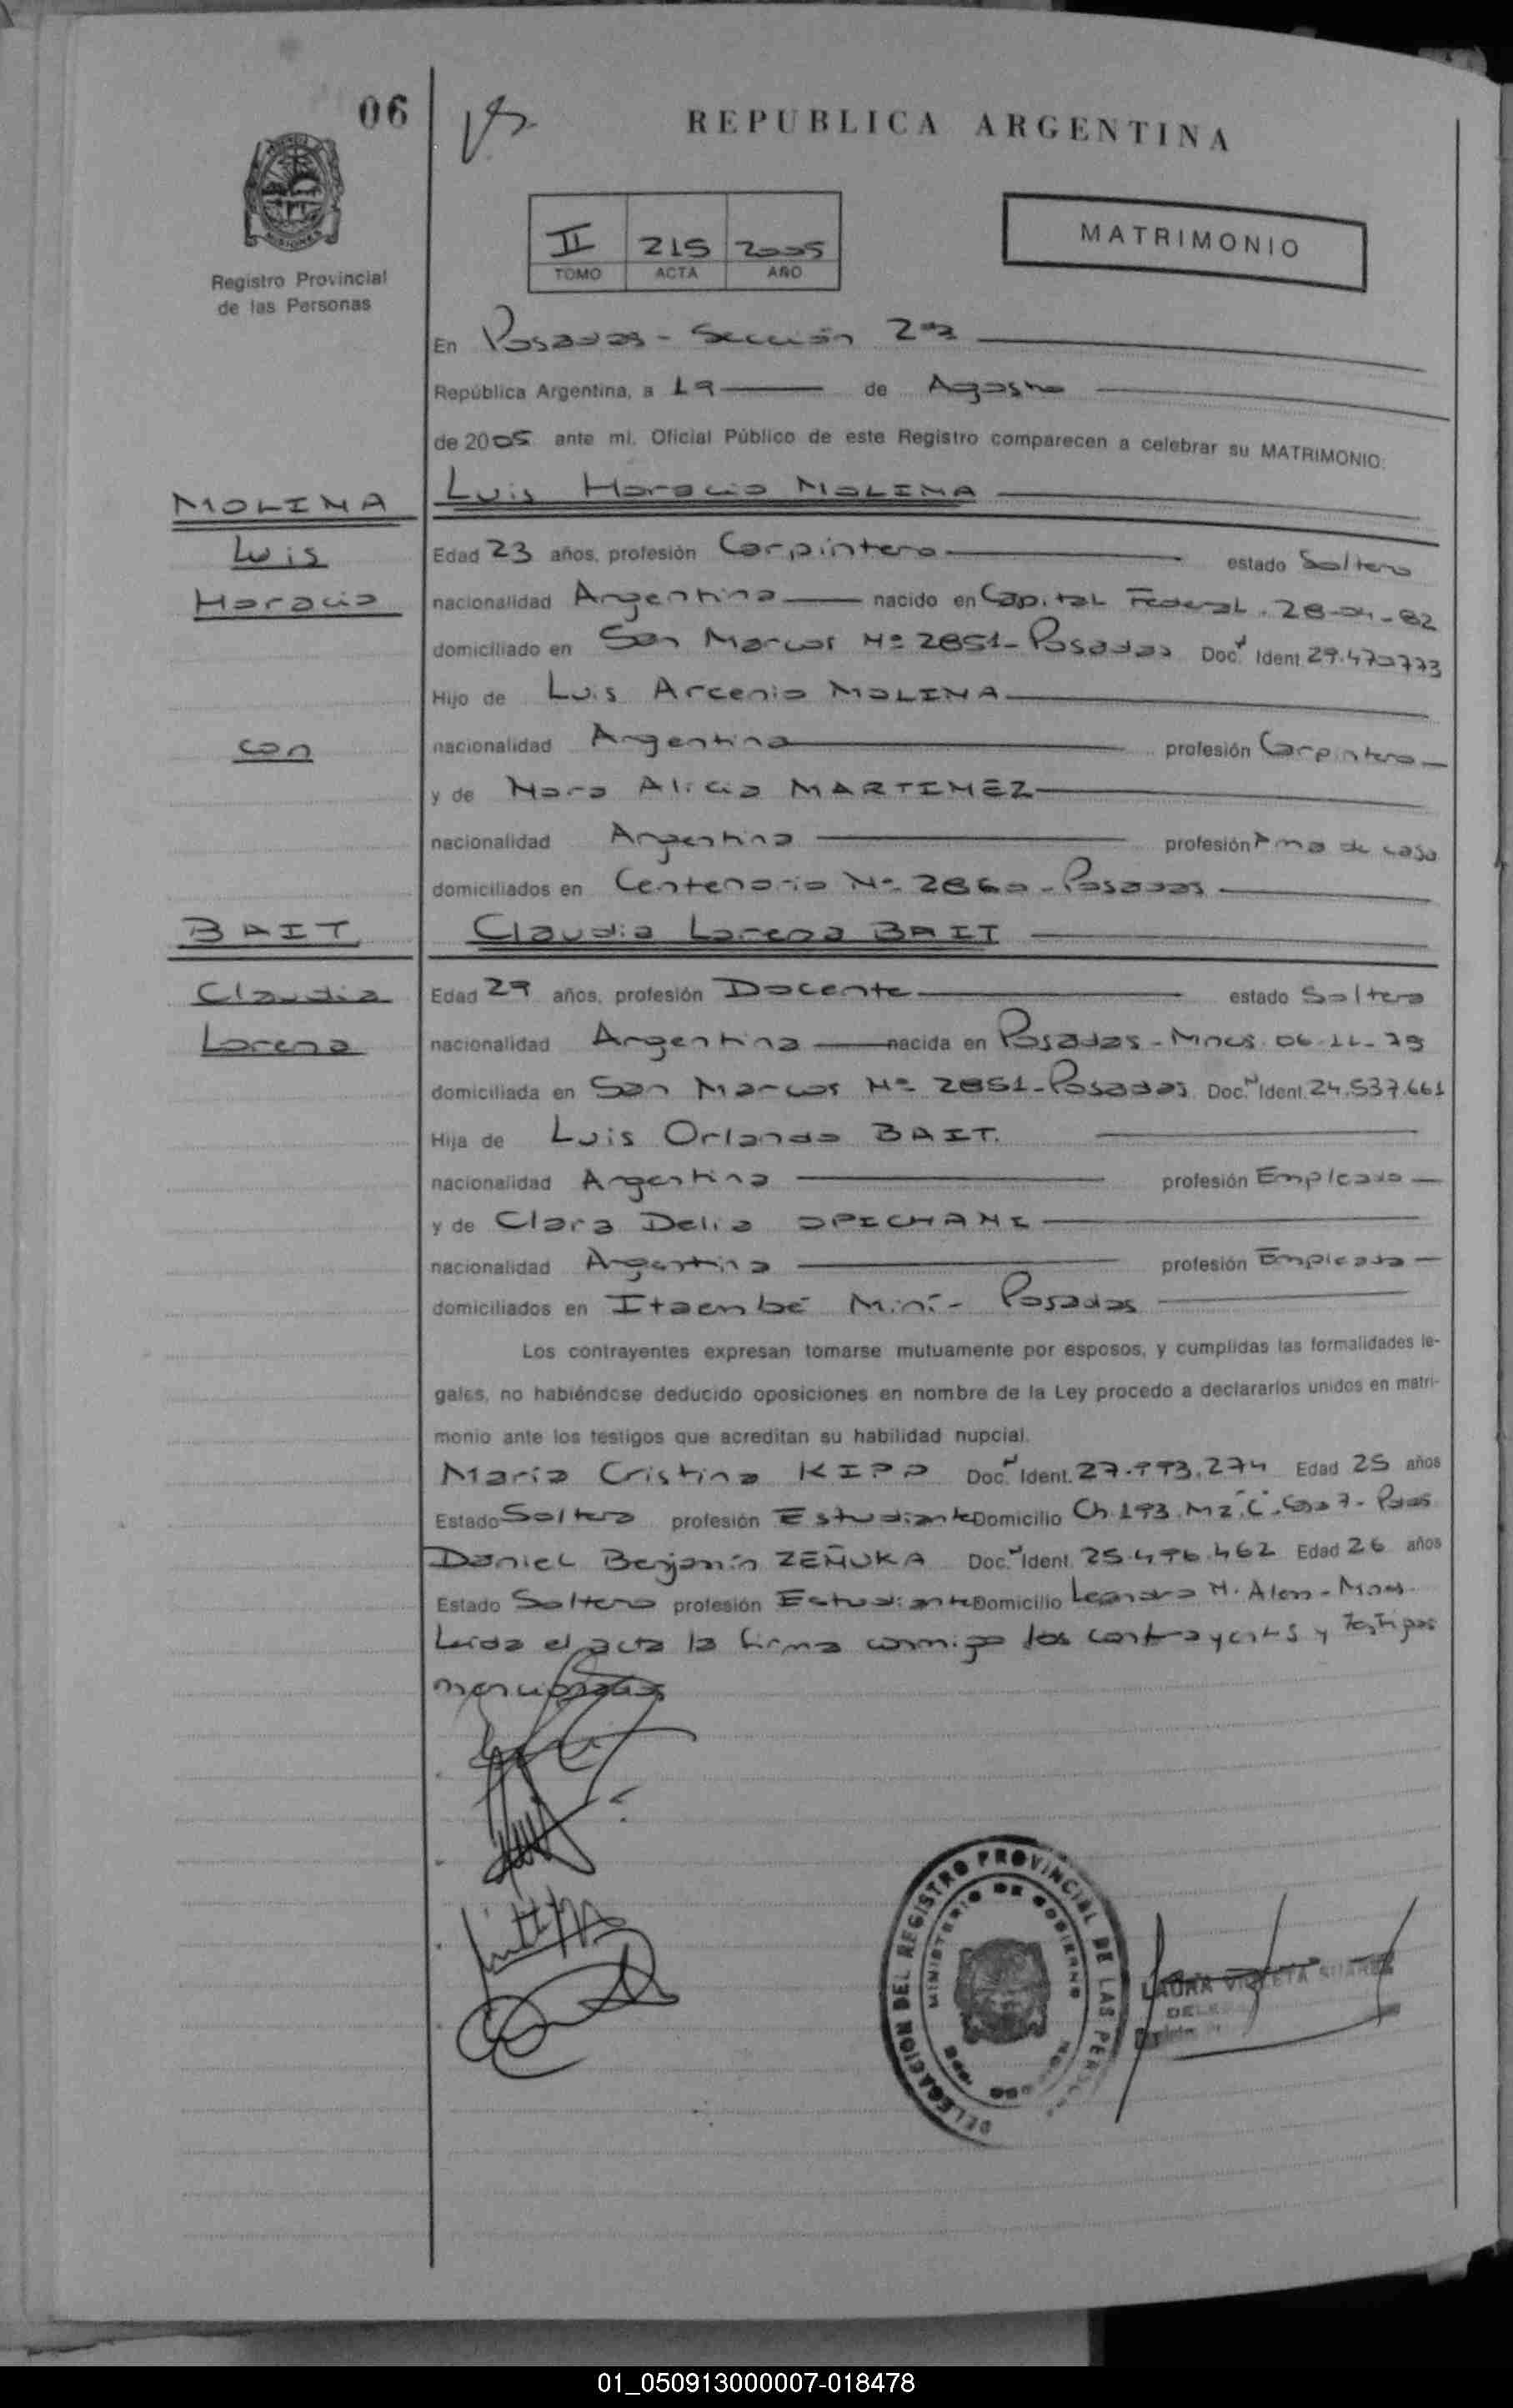 06
REPUBLICA ARGENTINA
MISIONES
Registro Provincial
de las Personas
II 215 2005
TOMO ACTA AÑO
MATRIMONIO
En Posadas - Sección 2da
República Argentina, a 19 de Agosto
de 2005 ante mí, Oficial Público de este Registro comparecen a celebrar su MATRIMONIO:
MOLINA
Luis
Horacio
con
BAIT
Claudia
Lorena
Luis Horacio MOLINA
Edad 23 años, profesión Carpintero estado Soltero
nacionalidad Argentina nacido en Capital Federal. 28-04-82
domiciliado en San Marcos Nº 2851 - Posadas Doc. Ident. 29.470773
Hijo de Luis Arcenio MOLINA
nacionalidad Argentina profesión Carpintero
y de Nora Alicia MARTINEZ
nacionalidad Argentina profesión Ama de casa
domiciliados en Centenario Nº 2860 - Posadas
Claudia Lorena BAIT
Edad 29 años, profesión Docente estado Soltera
nacionalidad Argentina nacida en Posadas - Mnes. 06-11-75
domiciliada en San Marcos Nº 2851 - Posadas Doc. Ident. 24.537.661
Hija de Luis Orlando BAIT.
nacionalidad Argentina profesión Empleado
y de Clara Delia OPICHANI
nacionalidad Argentina profesión Empleada
domiciliados en Itaembé Miní - Posadas
Los contrayentes expresan tomarse mutuamente por esposos, y cumplidas las formalidades le-
gales, no habiéndose deducido oposiciones en nombre de la Ley procedo a declararlos unidos en matri-
monio ante los testigos que acreditan su habilidad nupcial.
María Cristina KIPP Doc. Ident. 27.993.274 Edad 25 años
Estado Soltera profesión Estudiante Domicilio Ch. 193. Mz. "C". Casa 7 - Pdas
Daniel Benjamín ZEÑUKA Doc. Ident. 25.496.462 Edad 26 años
Estado Soltero profesión Estudiante Domicilio Leandro N. Alem - Mnes.
Leída el acta la firma conmigo los contrayentes y testigos
mencionados
DELEGACION DEL REGISTRO PROVINCIAL DE LAS
MINISTERIO DE GOBIERNO
LAURA VIOLETA SUAREZ
01_050913000007-018478